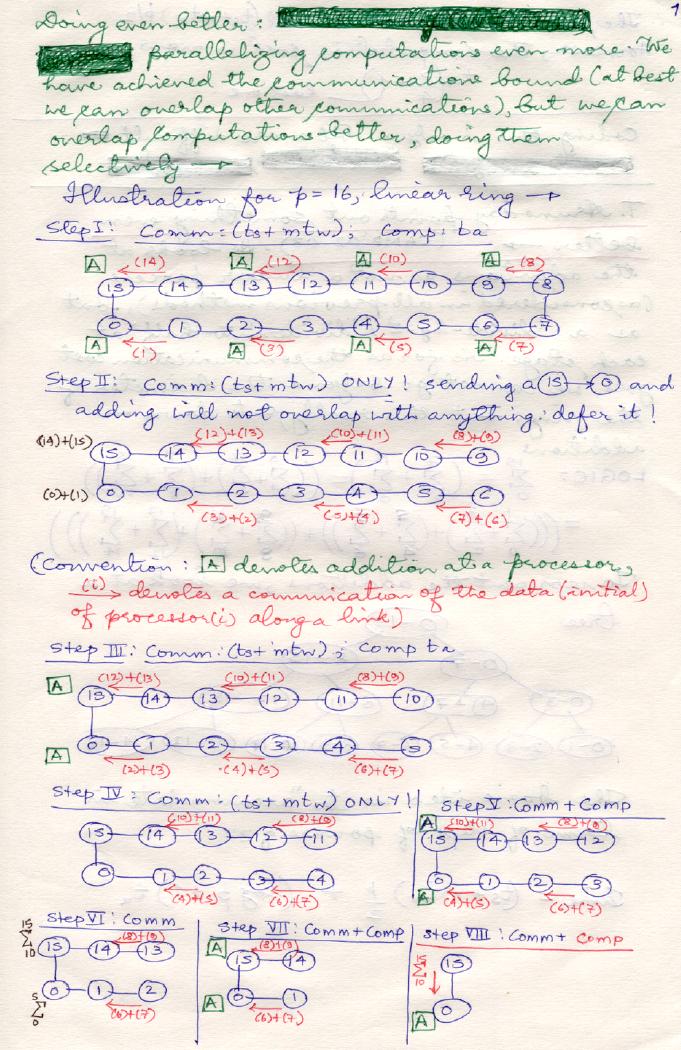 1
Doing even better:
parallelizing computations even more. We
have achieved the communications bound (at best
we can overlap other communications), but we can
overlap computations better, doing them
selectively →
Illustration for p = 16, linear ring →
Step I: Comm: (ts + mtw); Comp: ta
A (14) A (12) A (10) A (8)
15 14 13 12 11 10 9 8
0 1 2 3 4 5 6 7
A (1) A (3) A (5) A (7)
Step II: Comm: (ts + mtw) ONLY! sending a (15) → (0) and
adding will not overlap with anything: defer it!
(14)+(15) (12)+(13) (10)+(11) (8)+(9)
15 14 13 12 11 10 9
(0)+(1) 0 1 2 3 4 5 6
(3)+(2) (5)+(4) (7)+(6)
(Convention: A denotes addition at a processor,
(i) → denotes a communication of the data (initial)
of processor (i) along a link)
Step III: Comm: (ts + mtw); Comp ta
A (12)+(13) (10)+(11) (8)+(9)
15 14 13 12 11 10
A 0 1 2 3 4 5
(2)+(3) (4)+(5) (6)+(7)
Step IV: Comm: (ts + mtw) ONLY!
(10)+(11) (8)+(9)
15 14 13 12 11
0 1 2 3 4
(4)+(5) (6)+(7)
Step V: Comm + Comp
A (10)+(11) (8)+(9)
15 14 13 12
0 1 2 3
A (4)+(5) (6)+(7)
Step VI: Comm
15 Σ 10 (8)+(9)
15 14 13
0 1 2
5 Σ 0 (6)+(7)
Step VII: Comm + Comp
A (8)+(9)
15 14
A 0 1
(6)+(7)
Step VIII: Comm + Comp
15 Σ 10 ↓ 15
A 0